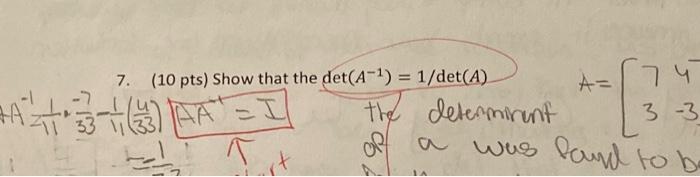 7. (10 pts) Show that the det(A⁻¹) = 1/det(A)
A = [7 4
3 -3
A⁻¹ = 1/11 · -7/33 - 1/11 (4/33)
AA⁻¹ = I
the determinent
of a was found to b